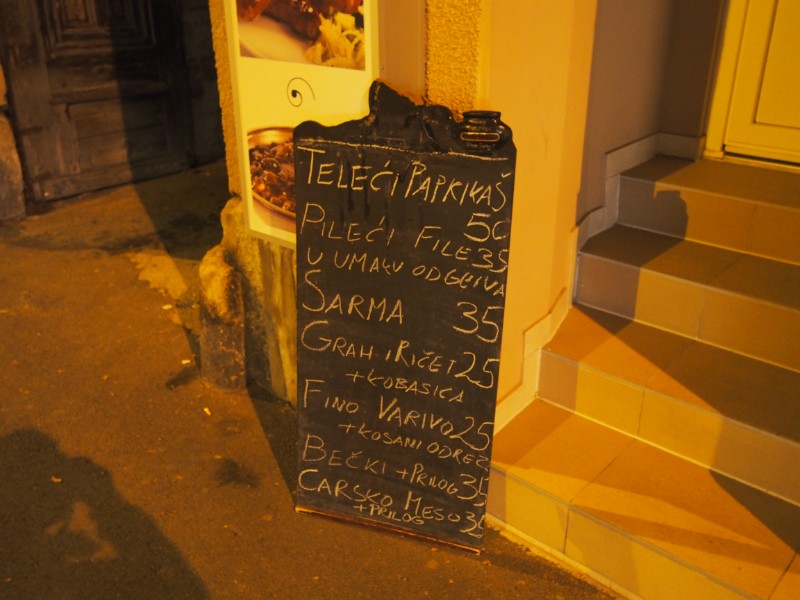 TELEĆI PAPRIKAŠ
50
PILEĆI FILE 35
U UMAKU OD GLJIVA
ŠARMA 35
GRAH I RIČET 25
+ KOBASICA
FINO VARIVO 25
+ KOSANI ODREZ
BEČKI + PRILOG 35
CARSKO MESO 35
+ PRILOG